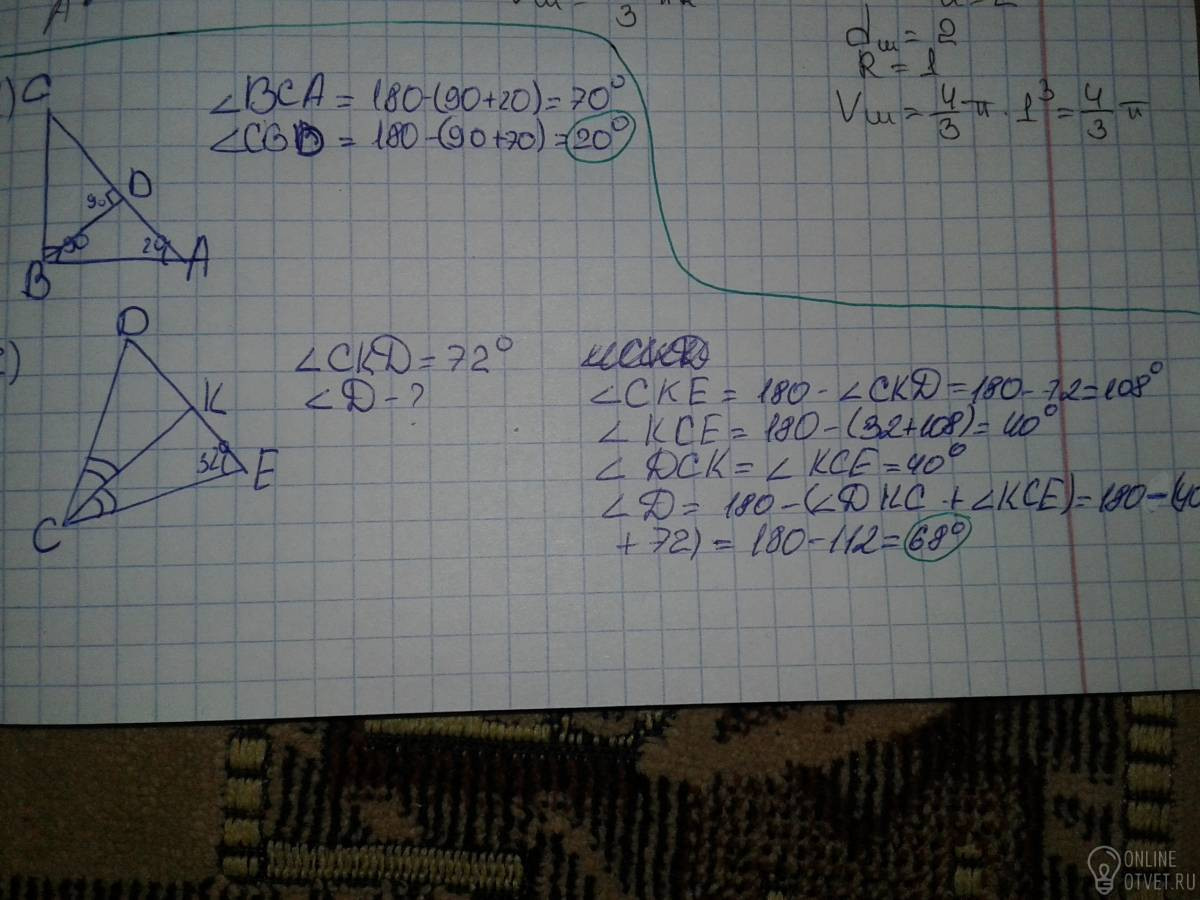 3
d ш = 2
R = 1
Vш = 4/3 π · 1³ = 4/3 π
C
∠BCA = 180-(90+20) = 70°
∠CBD = 180-(90+70) = 20°
90
D
90
20
B
A
D
∠CKD = 72°
∠D - ?
K
32°
E
C
∠CKE = 180 - ∠CKD = 180 - 72 = 108°
∠KCE = 180 - (32+108) = 40°
∠DCK = ∠KCE = 40°
∠D = 180 - (∠DKC + ∠KCE) = 180 - (40
+ 72) = 180 - 112 = 68°
ONLINE
OTVET.RU